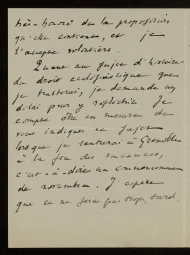 très-honoré de la proposition
qu'elle contient, et je
l'accepte volontiers.
Quant au sujet d'histoire
du droit ecclésiastique que
je traiterai, je demande un
délai pour y réfléchir. Je
compte être en mesure de
vous indiquer ce sujet
lorsque je rentrerai à Grenoble
à la fin des vacances,
c'est-à-dire au commencement
de novembre. J'espère
que ce ne sera pas trop tard.